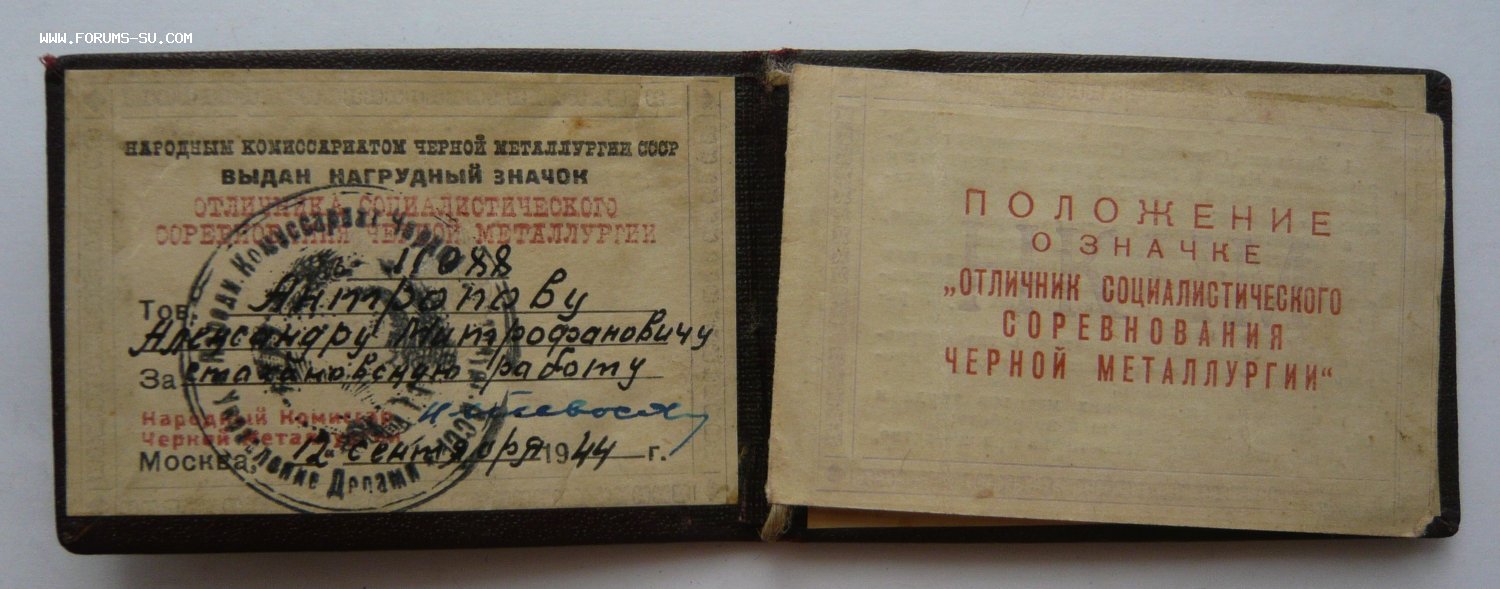 WWW.FORUMS-SU.COM
НАРОДНЫМ КОМИССАРИАТОМ ЧЕРНОЙ МЕТАЛЛУРГИИ СССР
ВЫДАН НАГРУДНЫЙ ЗНАЧОК
ОТЛИЧНИКА СОЦИАЛИСТИЧЕСКОГО
СОРЕВНОВАНИЯ ЧЕРНОЙ МЕТАЛЛУРГИИ
№ 11088
Тов. Антропову
Александру Митрофановичу
За стахановскую работу
Народный Комиссар
Черной Металлургии
Москва, 12 сентября 1944 г.
ПОЛОЖЕНИЕ
О ЗНАЧКЕ
„ОТЛИЧНИК СОЦИАЛИСТИЧЕСКОГО
СОРЕВНОВАНИЯ
ЧЕРНОЙ МЕТАЛЛУРГИИ“